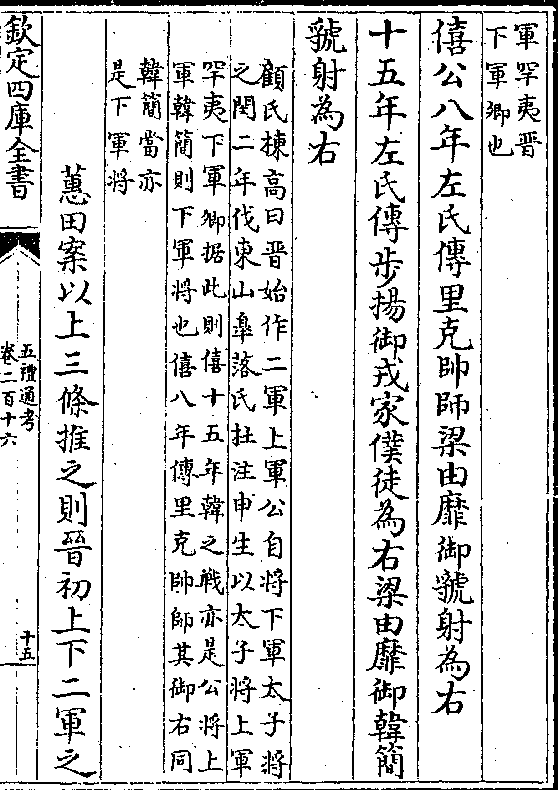 軍罕夷晉
下軍卿也
僖公八年左氏傳里克帥師梁由靡御虢射為右
十五年左氏傳步揚御戎家僕徒為右梁由靡御韓簡
虢射為右
顧氏棟高曰晉始作二軍上軍公自將下軍太子將
之閔二年伐東山臯落氏杜注申生以太子將上軍
罕夷下軍卿据此則僖十五年韓之戰亦是公將上
軍韓簡則下軍將也僖八年傳里克帥師其御右同
韓簡當亦
是下軍將
蕙田案以上三條推之則晉初上下二軍之
欽定四庫全書
五禮通考
卷二百十六
十五